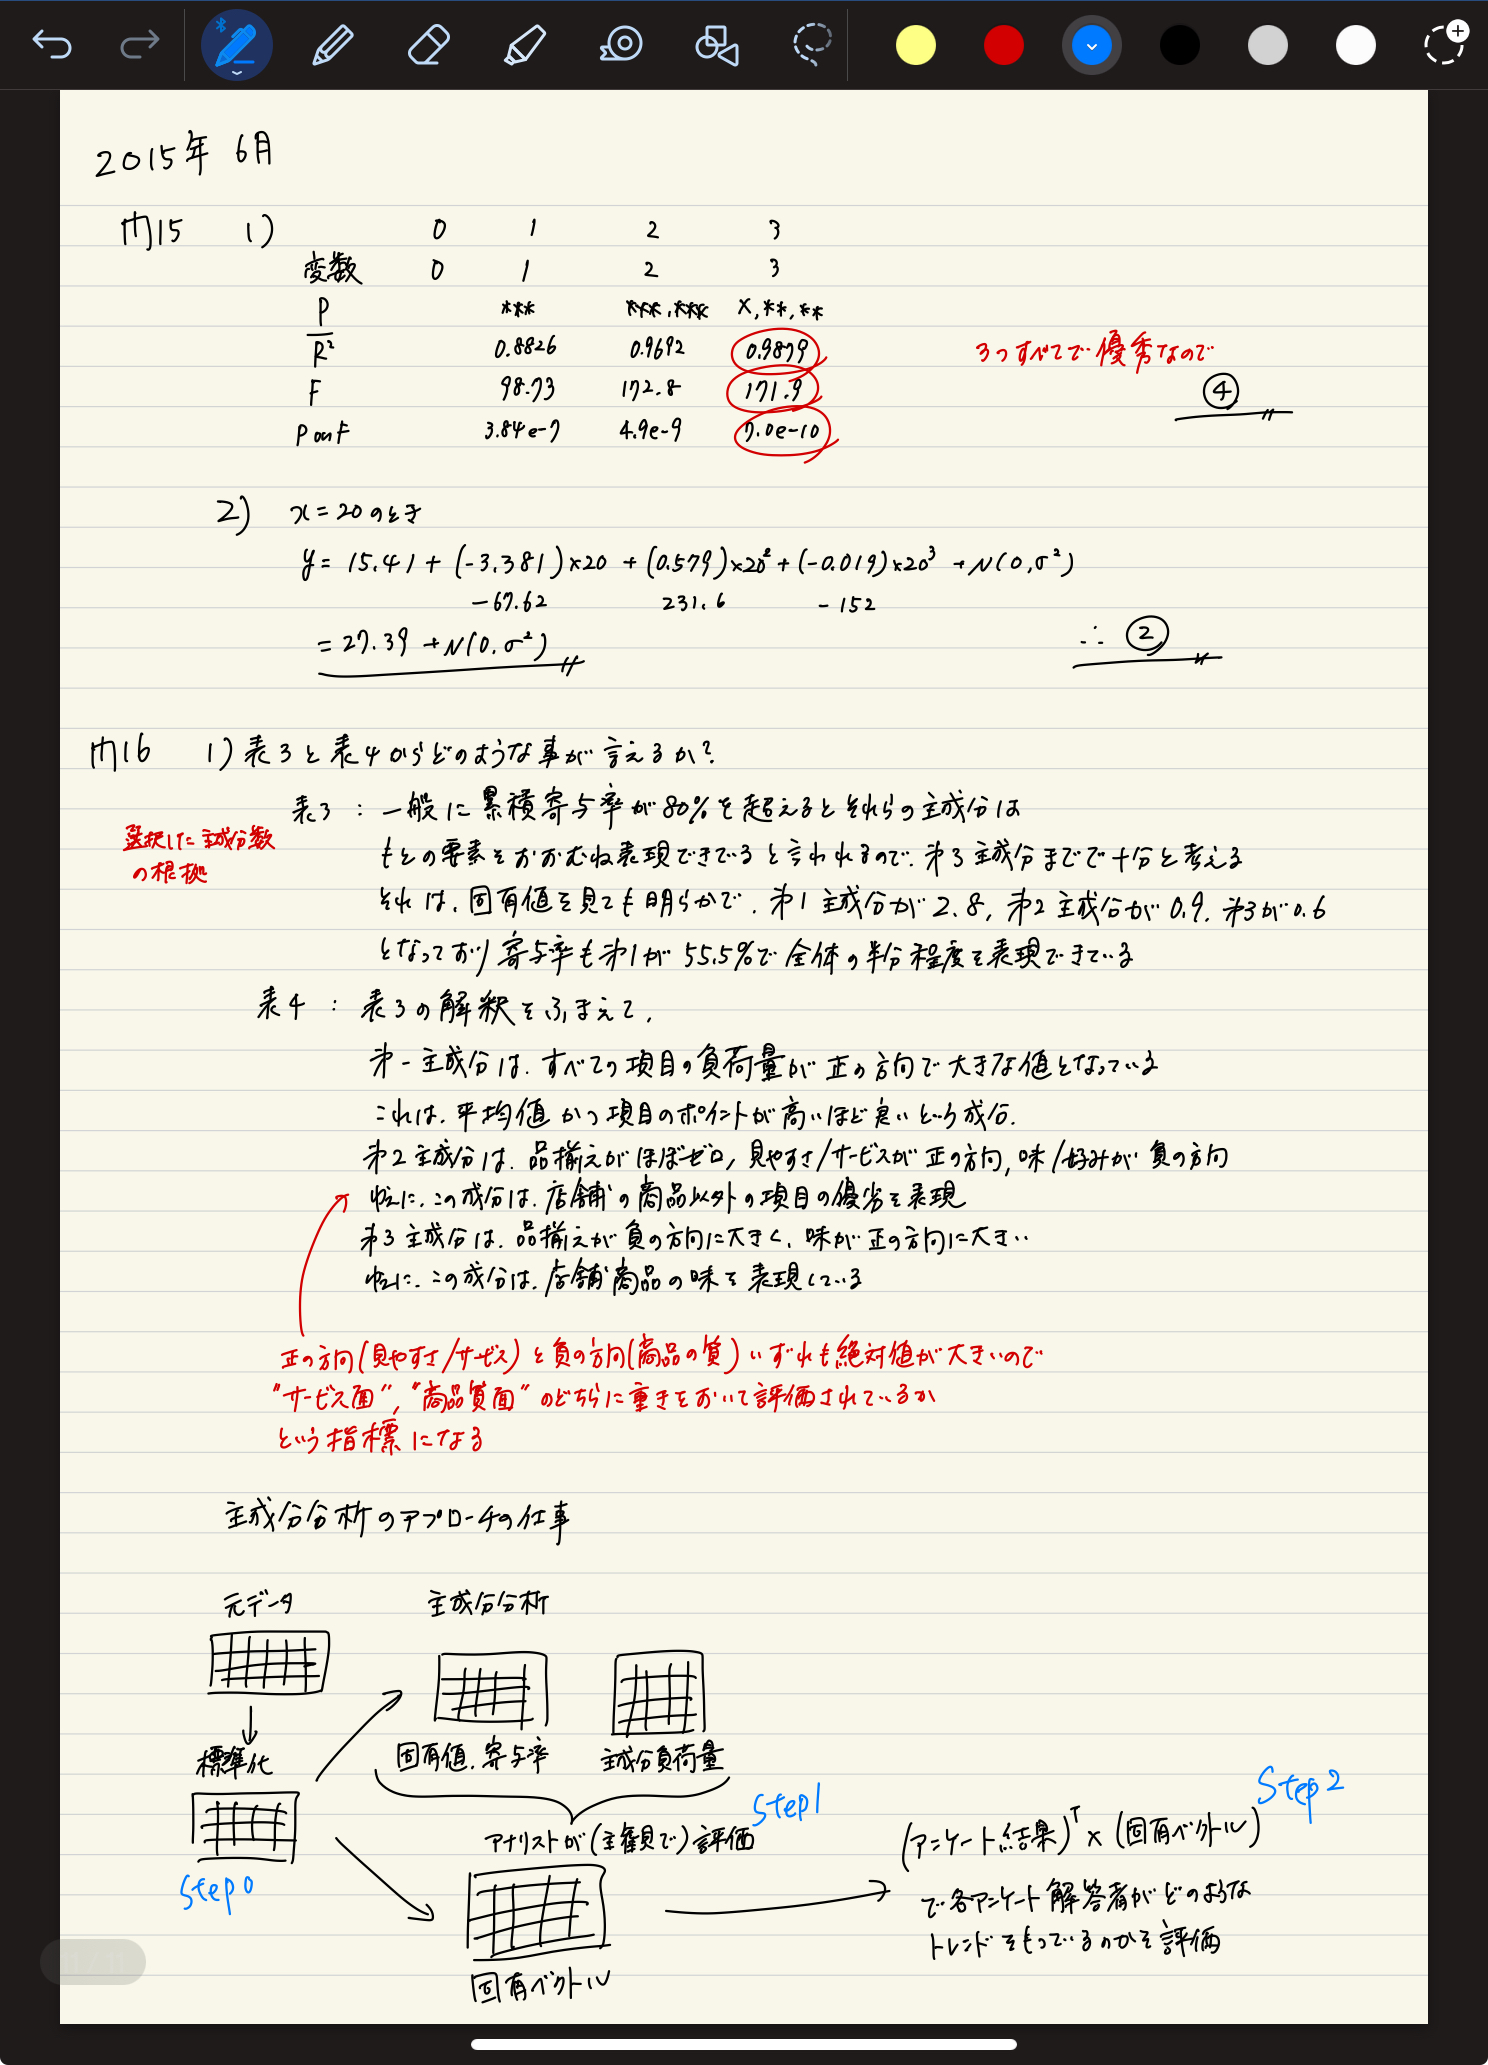 2015年 6月
問15 1) 0 1 2 3
変数 0 1 2 3
P *** ***,*** x,**,**
R² 0.8826 0.9692 0.9879 3つすべてで優秀なので
F 98.73 172.8 171.9 ④
P on F 3.84e-7 4.9e-9 7.0e-10
2) x=20のとき
y= 15.41+(-3.381)×20+(0.579)×20²+(-0.019)×20³+N(0,σ²)
-67.62 231.6 -152
=27.39+N(0,σ²) ∴ ②
問16 1)表3と表4からどのような事が言えるか?
表3 : 一般に累積寄与率が80%を超えるとそれらの主成分は
選択した主成分数
の根拠
もとの要素をおおむね表現できてると言われるので、第3主成分までで十分と考える
それは、固有値を見ても明らかで、第1主成分が2.8, 第2主成分が0.9, 第3が0.6
となっており寄与率も第1が55.5%で全体の半分程度を表現できている
表4 : 表3の解釈をふまえて、
第一主成分は、すべての項目の負荷量が正の方向で大きな値となっている
これは、平均値かつ項目のポイントが高いほど良いという成分.
第2主成分は、品揃えがほぼゼロ, 見やすさ/サービスが正の方向, 味/好みが負の方向
故に、この成分は、店舗の商品以外の項目の優劣を表現
第3主成分は、品揃えが負の方向に大きく、味が正の方向に大きい
故に、この成分は、店舗商品の味を表現している
正の方向(見やすさ/サービス)と負の方向(商品の質)いずれも絶対値が大きいので
"サービス面","商品質面"のどちらに重きをおいて評価されているか
という指標になる
主成分分析のアプローチの仕事
元データ 主成分分析
標準化 固有値、寄与率 主成分負荷量
Step1 Step2
アナリストが(主観で)評価 (アンケート結果)ᵀ×(固有ベクトル)
Step0
で各アンケート解答者がどのような
トレンドをもっているのかを評価
固有ベクトル